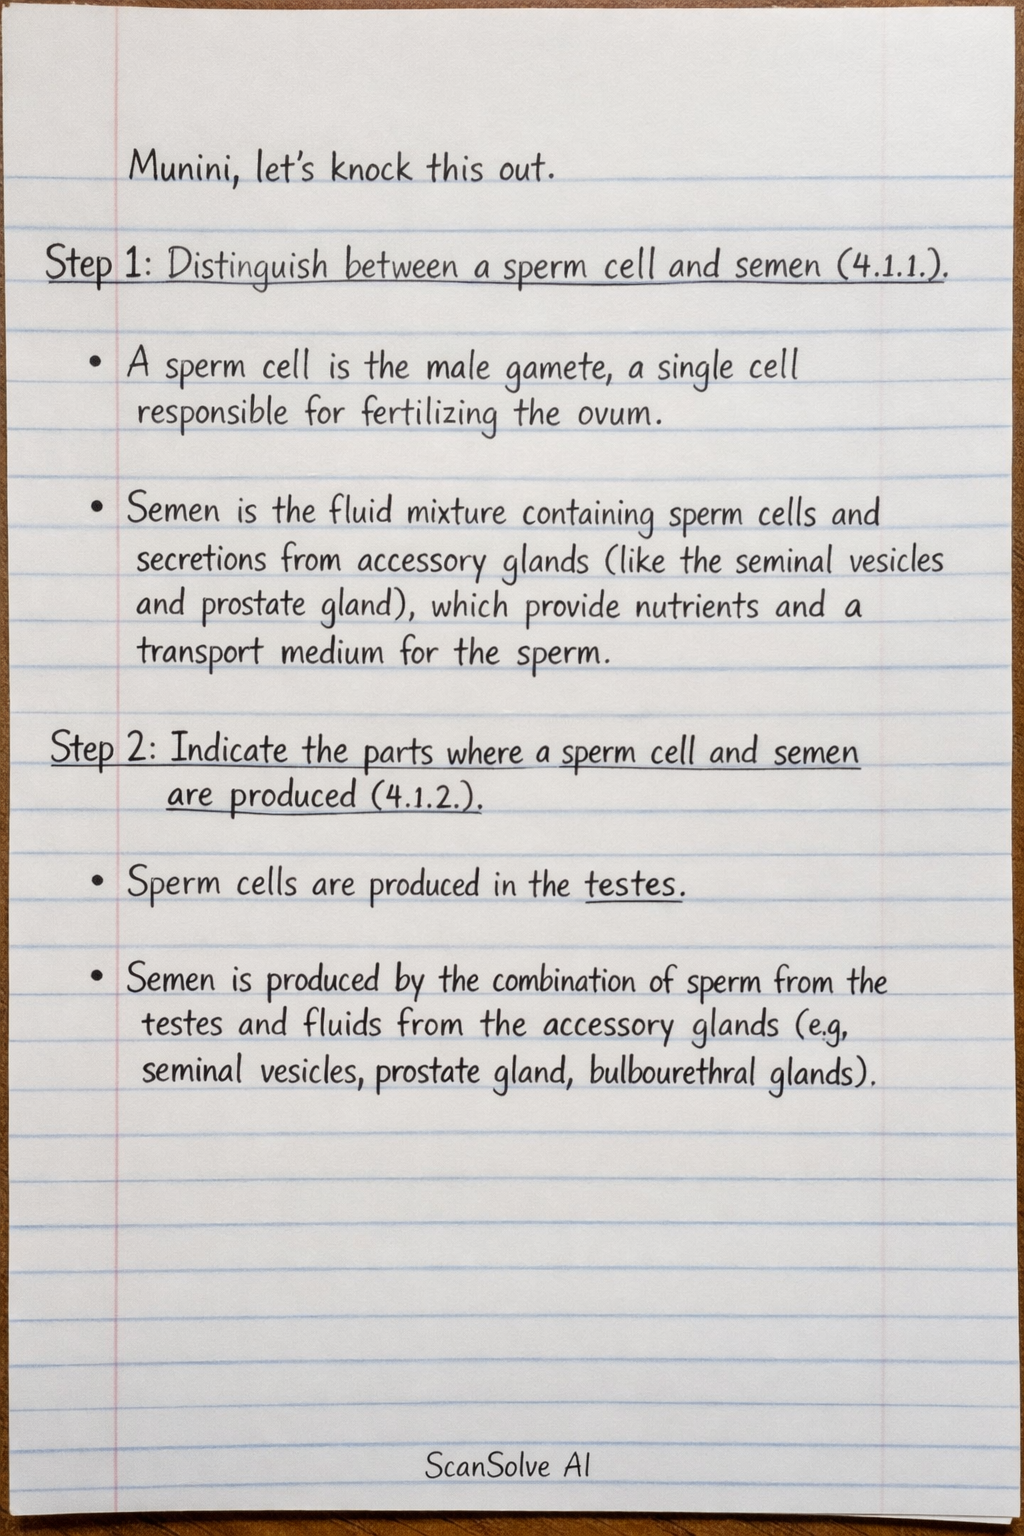 Munini, let's knock this out.
Step 1: Distinguish between a sperm cell and semen (4.1.1.).
• A sperm cell is the male gamete, a single cell
responsible for fertilizing the ovum.
• Semen is the fluid mixture containing sperm cells and
secretions from accessory glands (like the seminal vesicles
and prostate gland), which provide nutrients and a
transport medium for the sperm.
Step 2: Indicate the parts where a sperm cell and semen
are produced (4.1.2.).
• Sperm cells are produced in the testes.
• Semen is produced by the combination of sperm from the
testes and fluids from the accessory glands (e.g,
seminal vesicles, prostate gland, bulbourethral glands).
ScanSolve AI